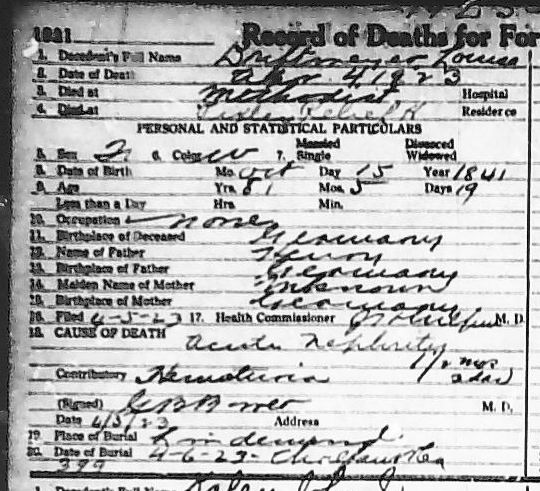 1931 Record of Deaths for For
1. Decedent's Full Name Driftmeyer Louisa
2. Date of Death Apr. 4 1923
3. Died at Methodist Hospital
4. Died at Residence
PERSONAL AND STATISTICAL PARTICULARS
Married Divorced
5. Sex F. 6. Color W 7. Single Widowed
8. Date of Birth Mo. Oct Day 15 Year 1841
9. Age Yrs. 81 Mos. 5 Days 19
Less than a Day Hrs. Min.
10. Occupation None
11. Birthplace of Deceased Germany
12. Name of Father Henry
13. Birthplace of Father Germany
14. Maiden Name of Mother Unknown
15. Birthplace of Mother Germany
16. Filed 4-5-23 17. Health Commissioner M. D.
18. CAUSE OF DEATH
Acute Nephritis
mos
Contributory Hematuria
(Signed) M. D.
Date 4/5/23 Address
19. Place of Burial
20. Date of Burial 4-6-23-
399
1. Decedent's Full Name